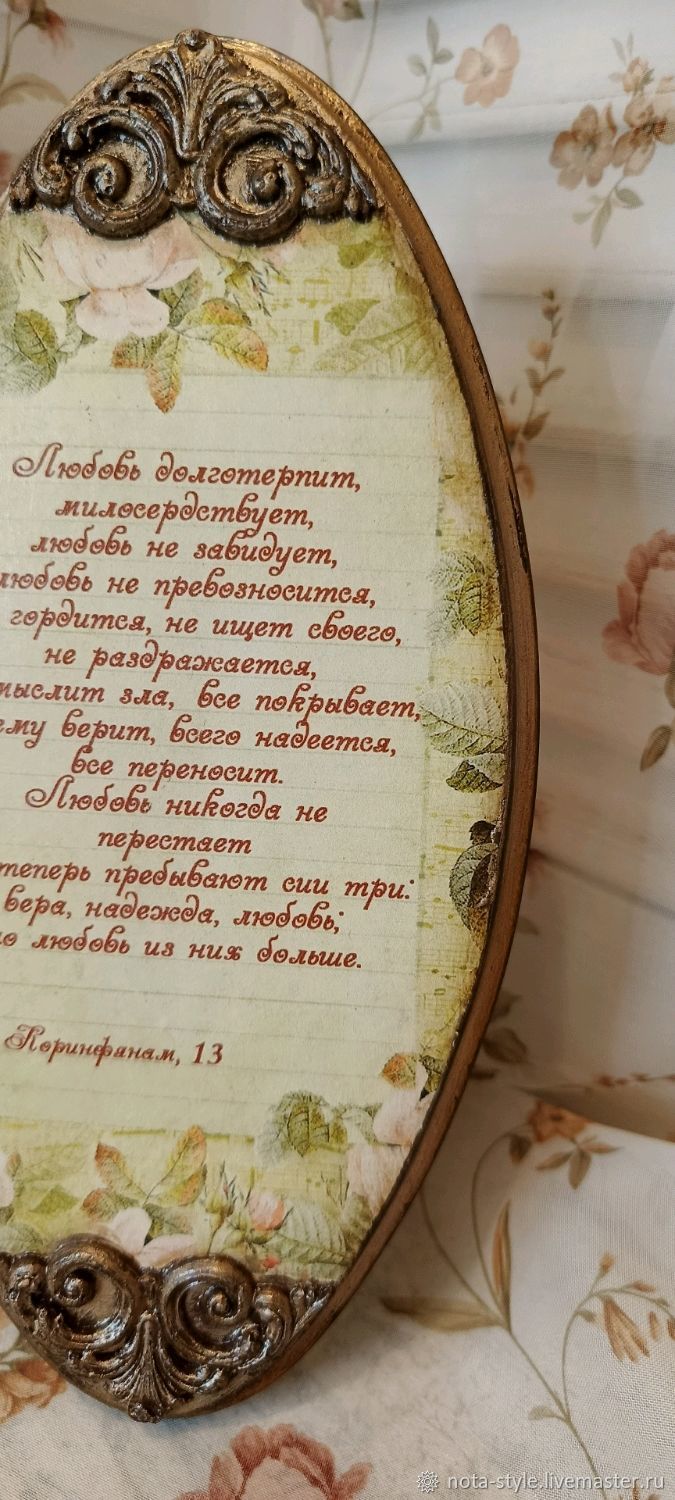 Любовь долготерпит,
милосердствует,
любовь не завидует,
любовь не превозносится,
гордится, не ищет своего,
не раздражается,
мыслит зла, все покрывает,
верит, всего надеется,
все переносит.
Любовь никогда не
перестает
теперь пребывают сии три:
вера, надежда, любовь;
любовь из них больше.
Коринфянам, 13
nota-style.livemaster.ru